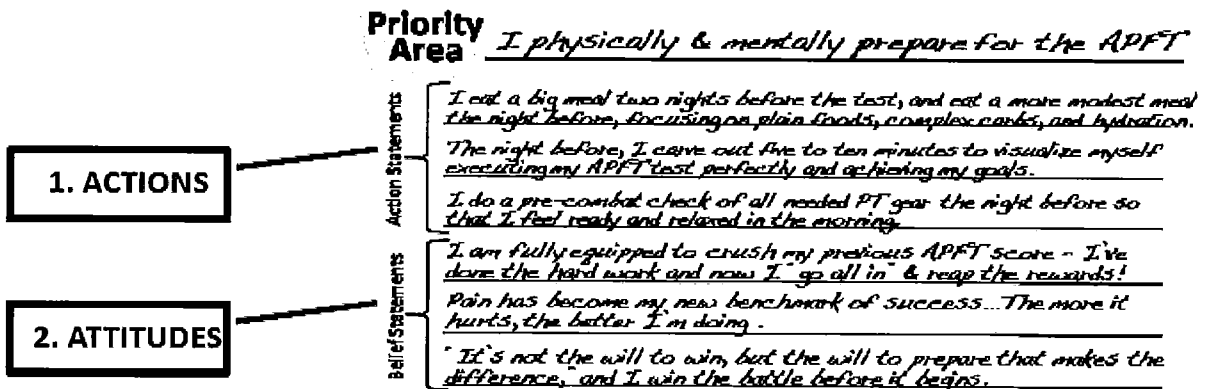 Priority
Area I physically & mentally prepare for the APFT
Action Statements
I eat a big meal two nights before the test, and eat a more modest meal
the night before, focusing on plain foods, complex carbs, and hydration.
The night before, I carve out five to ten minutes to visualize myself
executing my APFT test perfectly and achieving my goals.
I do a pre-combat check of all needed PT gear the night before so
that I feel ready and relaxed in the morning.
1. ACTIONS
Belief Statements
I am fully equipped to crush my previous APFT score - I've
done the hard work and now I "go all in" & reap the rewards!
Pain has become my new benchmark of success... The more it
hurts, the better I'm doing.
"It's not the will to win, but the will to prepare that makes the
difference," and I win the battle before it begins.
2. ATTITUDES